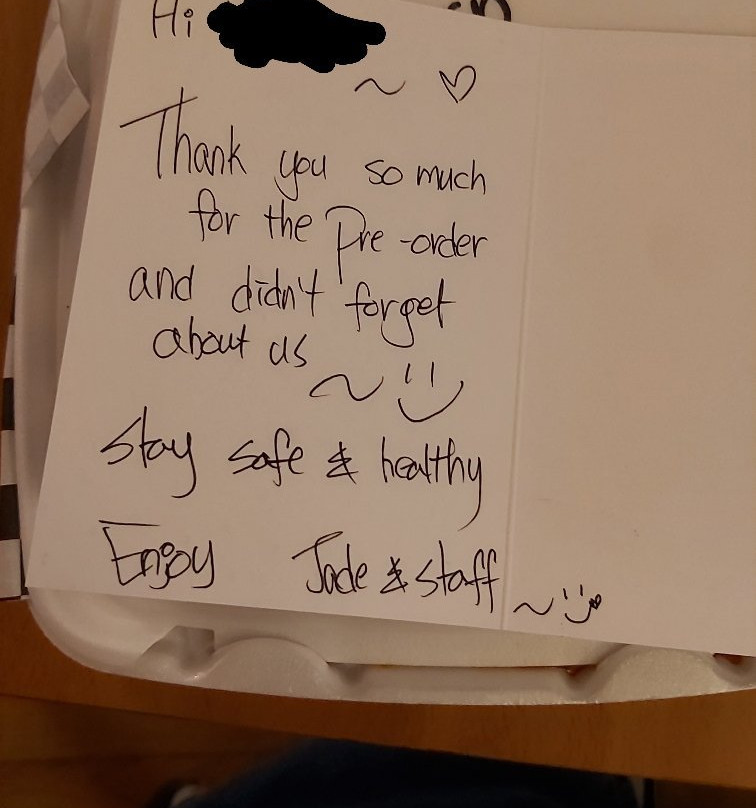 Hi
~ ♡
Thank you so much
for the Pre-order
and didn't forget
about us
~ :)
Stay safe & healthy
Enjoy Jade & staff ~ :)